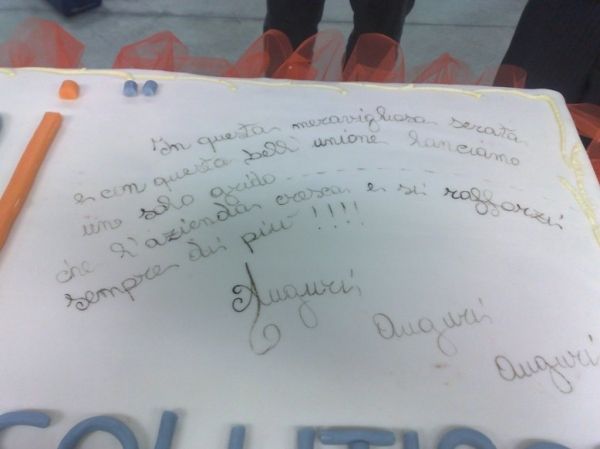 In questa meravigliosa serata
e con questa bell unione lanciamo
uno solo grido - - - - - - - - - - - -
che l'azienda cresca e si rafforzi
sempre di più !!!!
Auguri
auguri
auguri
SOLUTIO